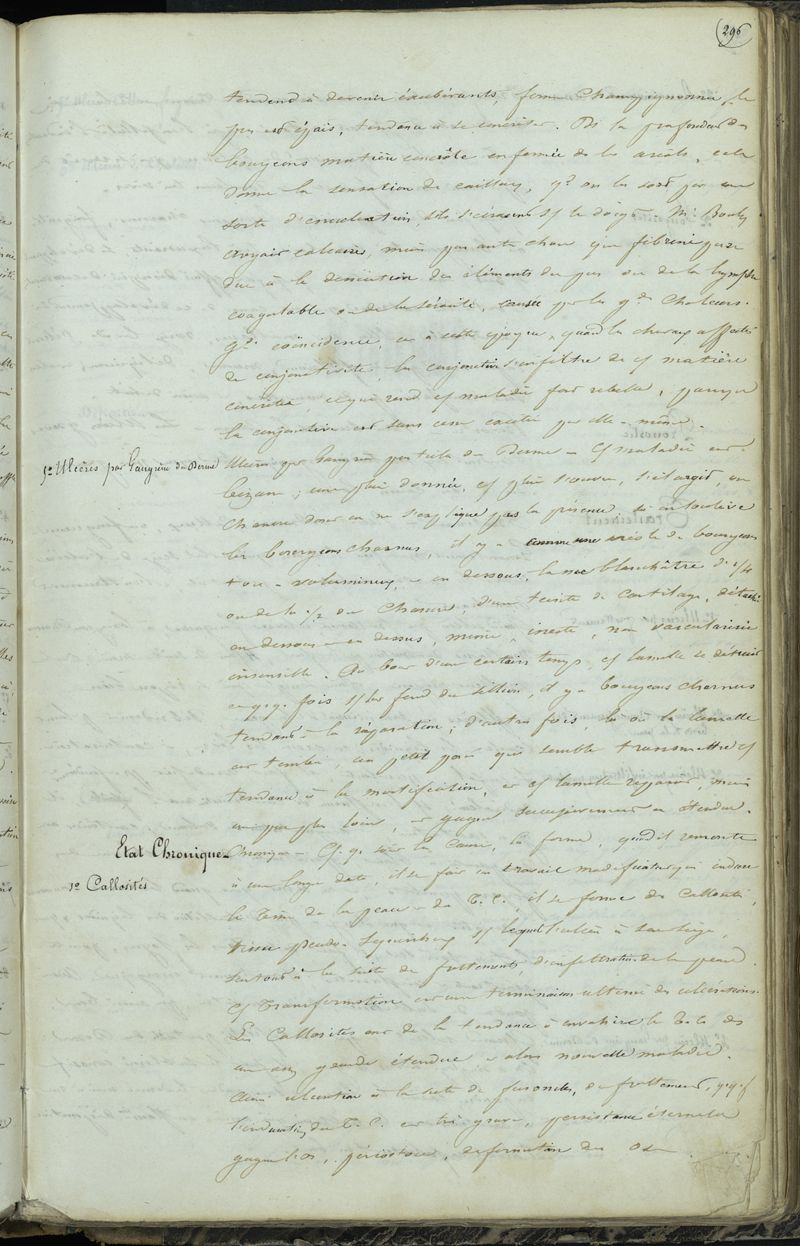 296
tendend à devenir exubérants, forme Champignonneuse, le
pus est épais, tendance à se concréter. De la profondeur des
bourgeons matière concrète enfermée ds les aréoles, cela
donne la sensation de cailloux, qd on les sort par une
sorte d'énucléation, ils s'écrasent s/ le doigt. Mr Bouley
croyait calcaires, mais pas autre chose que fibrine pure
due à la dessication des éléments du pus ou de la lymphe
coagulable ou de la sérosité, causée par les gdes Chaleurs.
gde coïncidence, car à cette époque, quand les chevaux affectés
de conjonctivite, la conjonctive s'infiltre de c/ matière
concrétée, ce qui rend c/ maladie fort rebelle, parceque
la conjonctive est sans cesse excitée par elle-même.
5º Ulcères par Gangrène du Derme
Ulcères par Gangrène partielle du Derme - C/ maladie est
bizarre; une plaie donnée, c/ plaie s'ouvre, s'élargit, un
Chancre dont on ne s'explique pas la présence, si on soulève
les bourgeons charnus, il y a comme une aréole de bourgeons
tout volumineux, et en dessous, lame blanchâtre d'1/4
ou de la 1/2 du Chancre, d'une teinte de Cartilage, détaché
en dessous et en dessus, mince, inerte, non vascularisée
insensible. Au bout d'un certain temps, c/ lamelle se détruit
et qq. fois s/ le fond du sillon, il y a bourgeons charnus
tendant à la réparation; d'autres fois, là où la lamelle
est tombée, un petit point qui semble transmettre c/
tendance à la mortification, et c/ lamelle reparait, mais
un peu plus loin, et gagne successivement en étendue.
Etat Chronique
Chronique - Q.q. soit la Cause, la forme, quand il remonte
1º Callosités
à une longue date, il se fait un travail modificateur qui indure
le Tissu de la peau et du T.C. il se forme des Callosités,
tissu pseudo-squirrheux s/ lequel l'ulcère a son siège,
surtout à la suite de frottements, d'infiltration de la peau.
C/ Transformation est une terminaison ultime des ulcérations.
Les Callosités ont de la tendance à envahir le T.C. ds
une assez grande étendue et alors nouvelle maladie.
Ainsi ulcération à la suite de furoncles, de frottements, qqf
l'induration du T.C. est très grave, persistance éternelle
gagne l'os, périostose, déformation des Os